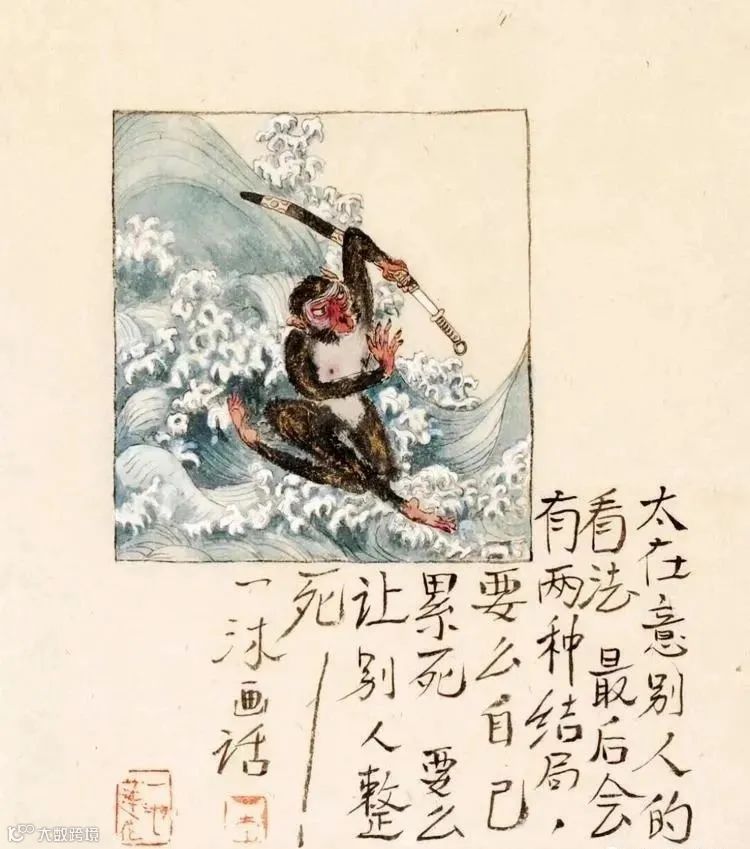 太在意别人的
看法 最后会
有两种结局，
要么自己
累死 要么
让别人整
死
一沐画话
大数跨境